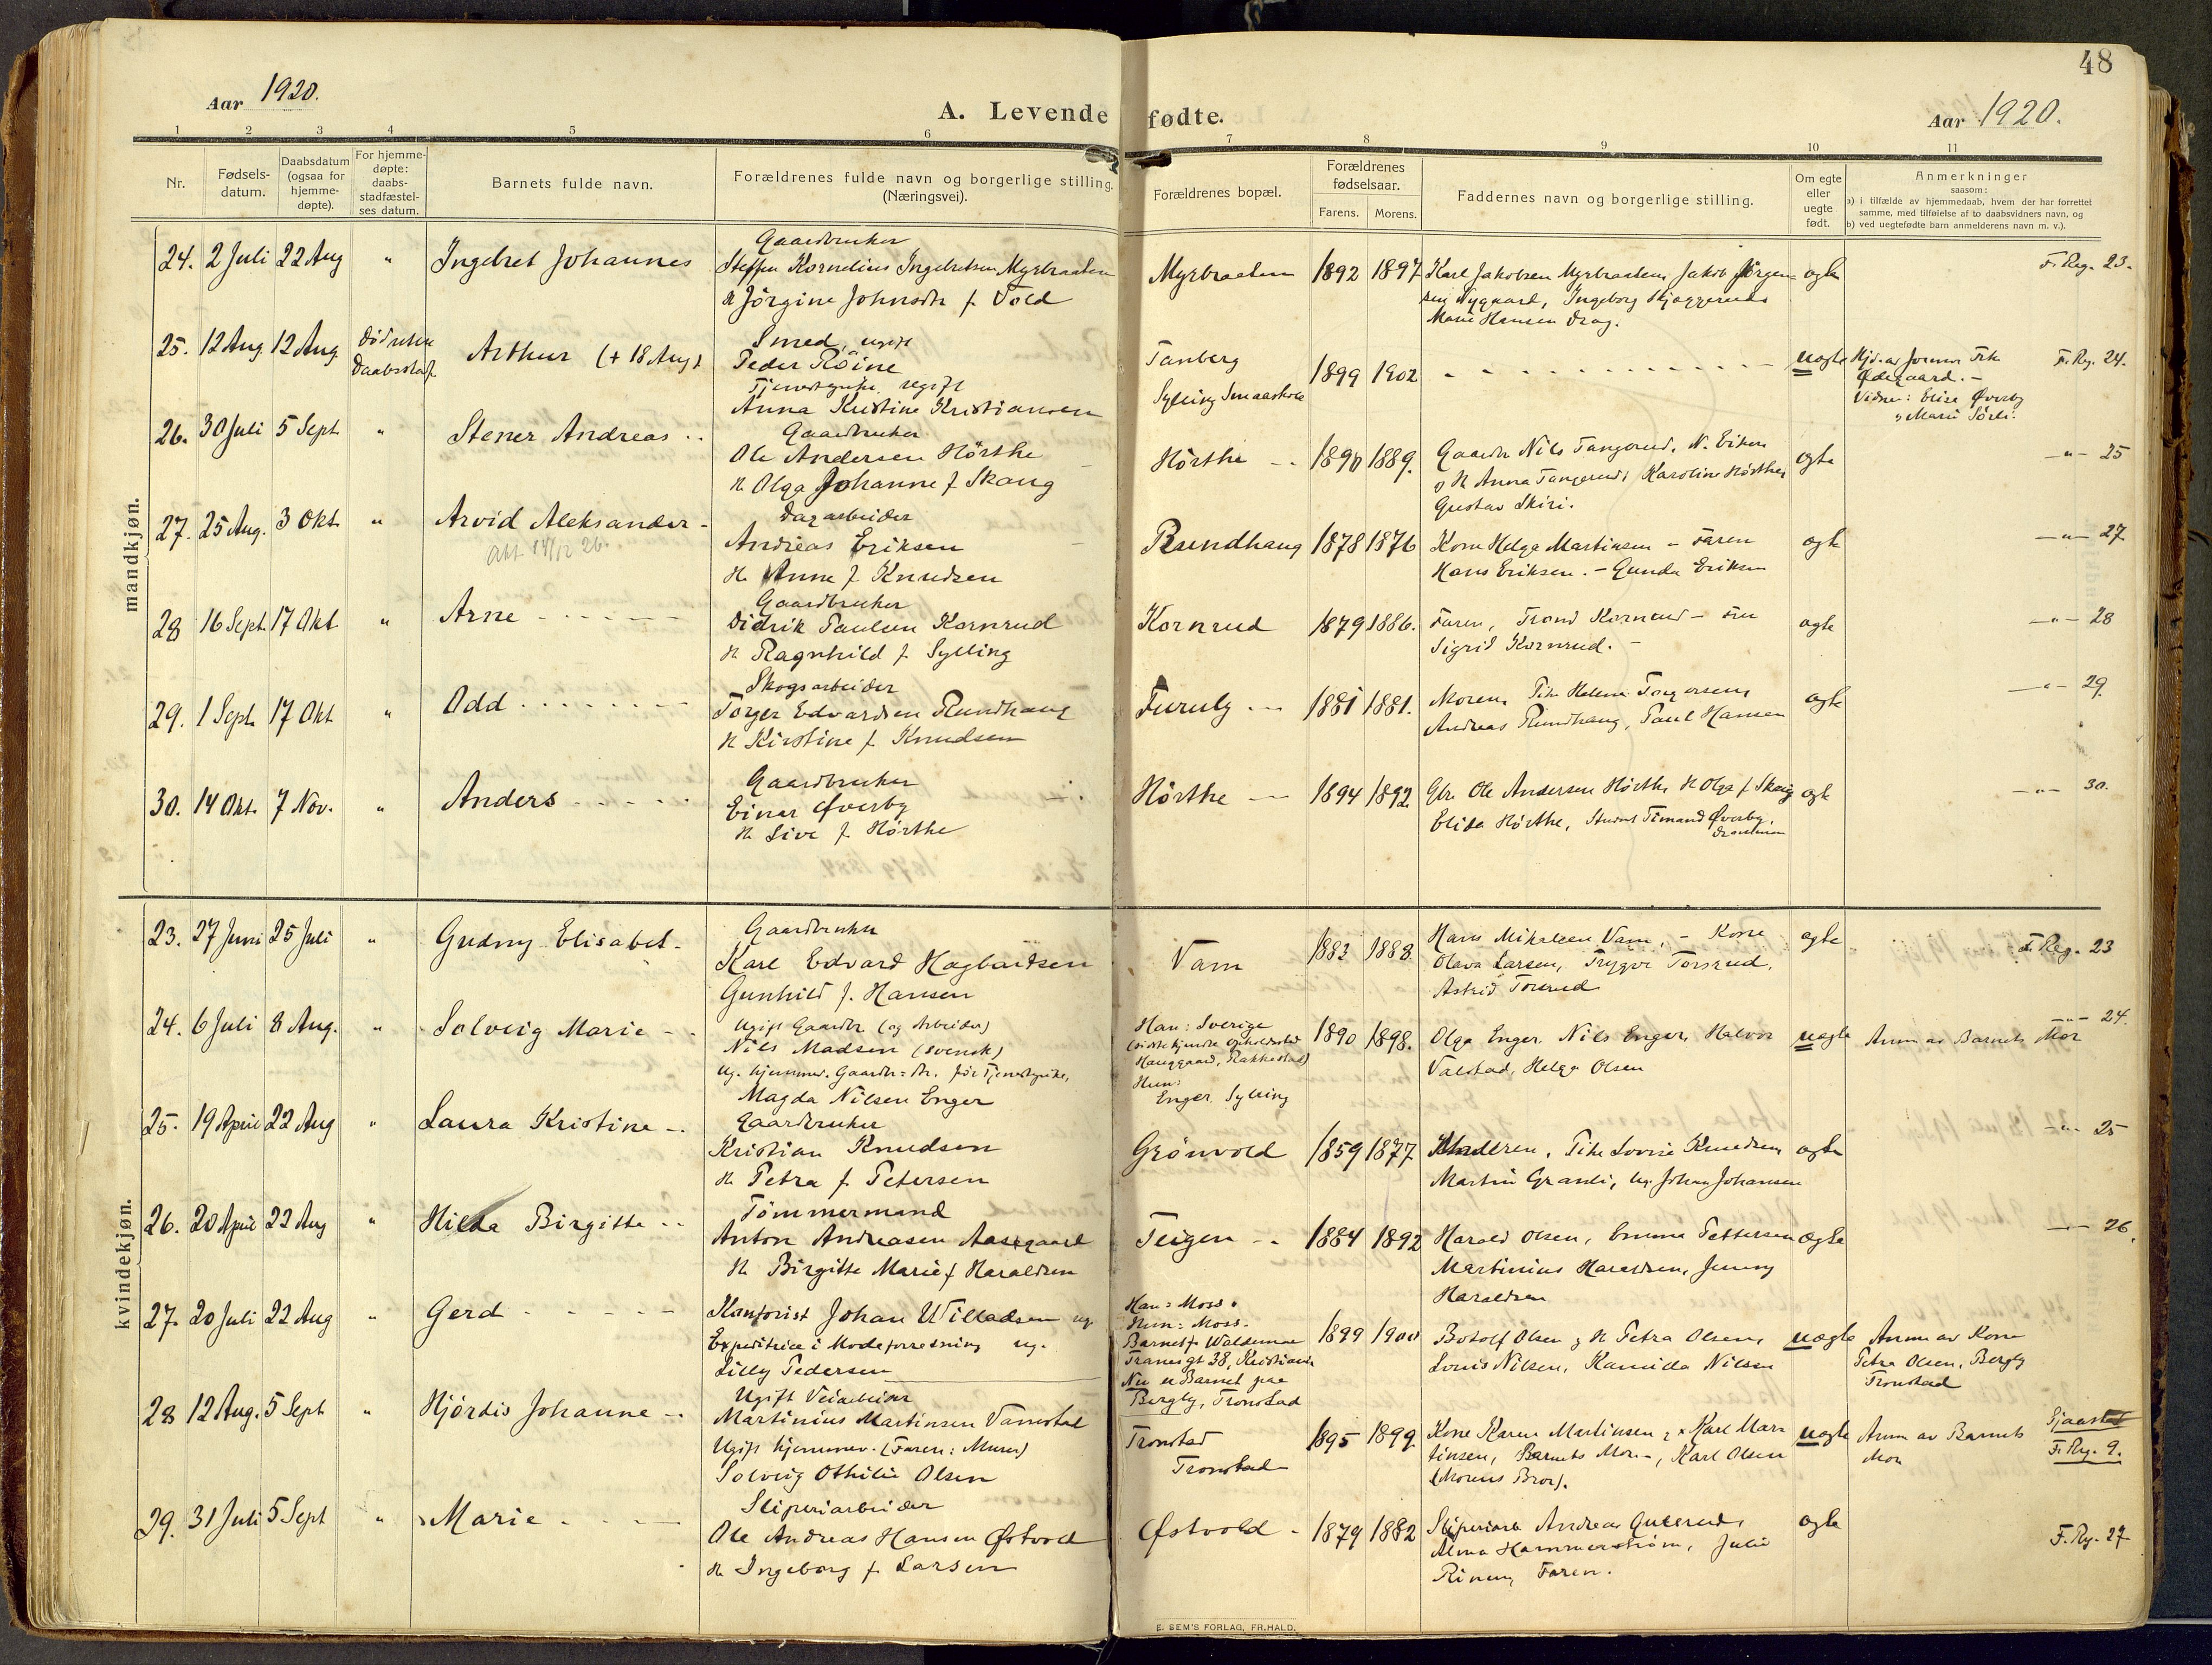 48
Aar 1920.
A. Levende fødte.
Aar 1920.
1 2 3 4 5 6 7 8 9 10 11
Nr.
Fødsels-
datum.
Daabsdatum
(ogsaa for
hjemme-
døpte).
For hjemme-
døpte:
daabs-
stadfæstel-
ses datum.
Barnets fulde navn.
Forældrenes fulde navn og borgerlige stilling.
(Næringsvei).
Forældrenes bopæl.
Forældrenes
fødselsaar.
Farens. Morens.
Faddernes navn og borgerlige stilling.
Om egte
eller
uegte
født.
Anmerkninger
saasom:
a) i tilfælde av hjemmedaab, hvem der har forrettet
samme, med tilføielse af to daabsvidners navn, og
b) ved uegtefødte barn anmelderens navn m. v.).
mandkjøn.
24. 2 Juli 22 Aug " Ingebret Johannes
Gaardbruker
Steffen Kornelius Ingebretsen Myrbraaten
H. Jörgine Johnsdtr f. Vold
Myrbraaten 1892 1897
Karl Jakobsen Myrbraaten, Jakob Jörgen-
sen Nygaard, Ingeborg Skjæggerud
Marie Hansen Drag.
egte
F. Reg. 23.
25. 12 Aug. 12 Aug
Död uten
Daabsstadf.
Arthur (+ 18 Aug)
Smed, ugift
Peder Röine
Tjenestepike, ugift
Anna Kristine Kristiansen
Tanberg
Sylling Smaaskole
1899 1902
uegte
Hjd. av Jormor Frk
Ødegaard. -
Vidner: Elise Øverby
" Marie Sørli.
F. Reg. 24.
26. 30 Juli 5 Sept " Stener Andreas
Gaardbruker
Ole Andersen Hörthe
H. Olga Johanne f Skaug
Hörthe 1890 1889.
Gaardbr Nils Tangerud, N. Eiker
og H Anna Tangerud, Karoline Hörthe,
Gustav Skiri.
egte
-"- 25
27. 25 Aug. 3 Okt " Arvid Aleksander
Att 18/12 26.
Dagarbeider
Andreas Eriksen
H. Anne f Knudsen
Rundhaug 1878 1876
Kone Helga Martinsen - Faren
Hans Eriksen. - Gunda Eriksen
egte
-"- 27
28 16 Sept 17 Okt " Arne
Gaardbruker
Didrik Paulsen Kornrud
H. Ragnhild f. Sylling
Kornrud 1879 1886.
Faren, Trond Kornrud - Fru
Sigrid Kornrud. -
egte
-"- 28
29. 1 Sept 17 Okt " Odd
Skogsarbeider
Torger Edvardsen Rundhaug
H Kirstine f. Knudsen
Furuly 1881 1881.
Moren, Pike Helene Torgersen,
Andreas Rundhaug, Paul Hansen
egte
-"- 29.
30. 14 Okt. 7 Nov. " Anders
Gaardbruker
Einar Øverby
H. Live f. Hörthe
Hörthe 1894 1892
Gbr. Ole Andersen Hörthe, H Olga f Skaug
Elida Hörthe, Student Timand Øverby,
Drammen
egte
-"- 30.
kvindekjøn.
23. 27 Juni 25 Juli " Gudny Elisabet
Gaardbruker
Karl Edvard Hagbartsen
Gunhild f. Hansen
Vam 1883 1888
Hans Mikalsen Vam, - Kone
Olava Larsen, Trygve Torsrud,
Astrid Torsrud
egte
F. Reg. 23
24. 6 Juli 8 Aug. " Solveig Marie
Ugift Gaardbr (og Arbeider)
Nils Madsen (svensk)
Ug. hjemmev. Gaardbr. dtr. før Tjenestepike,
Magda Nilsen Enger
Han: Sverige
(sidste kjendte Opholdssted
Hauggaard, Rakkestad)
Hun:
Enger, Sylling
1890 1898.
Olga Enger, Nils Enger, Halvor
Valstad, Helga Olsen
uegte
Anm av Barnets Mor
-"- 24.
25. 19 April 22 Aug " Laura Kristine
Gaardbruker
Kristian Knudsen
H. Petra f. Petersen
Grönvold 1859 1877
Moderen, Pike Lovise Knudsen,
Martin Granli, Ug. Johan Johansen
egte
-"- 25
26. 20 April 22 Aug " Hilda Birgitte
Tömmermand
Anton Andreasen Aasgaard
H. Birgitte Marie f Haraldsen
Teigen 1884 1892
Harald Olsen, Emma Pettersen
Martinius Haraldsen, Jenny
Haraldsen
egte
-"- 26.
27. 20 Juli 22 Aug " Gerd
Kontorist Johan Willadsen ug.
Expeditrice i Modeforretning ug.
Lilly Pedersen
Han: Moss.
Hun: Moss.
Barnet f. Waldemar
Tranes gt 38, Kristiania
Nu er Barnet paa
Bergly, Tronstad
1899 1900
Botolf Olsen og H Petra Olsen,
Louis Nilsen, Kamilla Nilsen
uegte
Anm av Kone
Petra Olsen, Bergly
Tronstad
28 12 Aug. 5 Sept " Hjördis Johanne
Ugift Veiarbeider
Martinius Martinsen Tronstad
Ugift hjemmev. (Faren: Murer)
Solveig Othilie Olsen
Tronstad
Tronstad
1895 1899.
Kone Karen Martinsen, Karl Mar-
tinsen, Barnets Mor, Karl Olsen
(Morens Bror).
uegte
Anm av Barnets
Mor
F. Reg. 9.
29. 31 Juli 5 Sept " Marie
Sliperiarbeider
Ole Andreas Hansen Østvold
H. Ingeborg f. Larsen
Østvold 1879 1882
Sliperiarb Andreas Guterud,
Alma Hammerström, Julie
Rining Faren.
egte
F. Reg. 27
E. SEM'S FORLAG, FR.HALD.